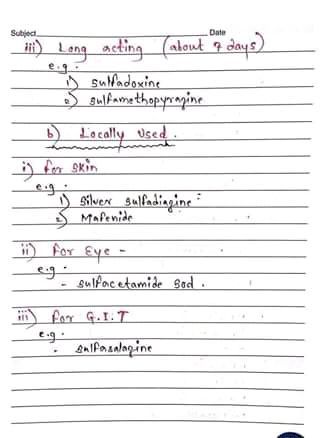 Subject Date
iii) Long acting (about 7 days)
e.g.
1) sulfadoxine
2) sulfamethopyrazine
b) Locally Used.
i) for Skin
e.g.
1) Silver sulfadiazine
2) Mafenide
ii) for Eye -
e.g.
- sulfacetamide Sod.
iii) for G.I.T
e.g.
- sulfasalazine